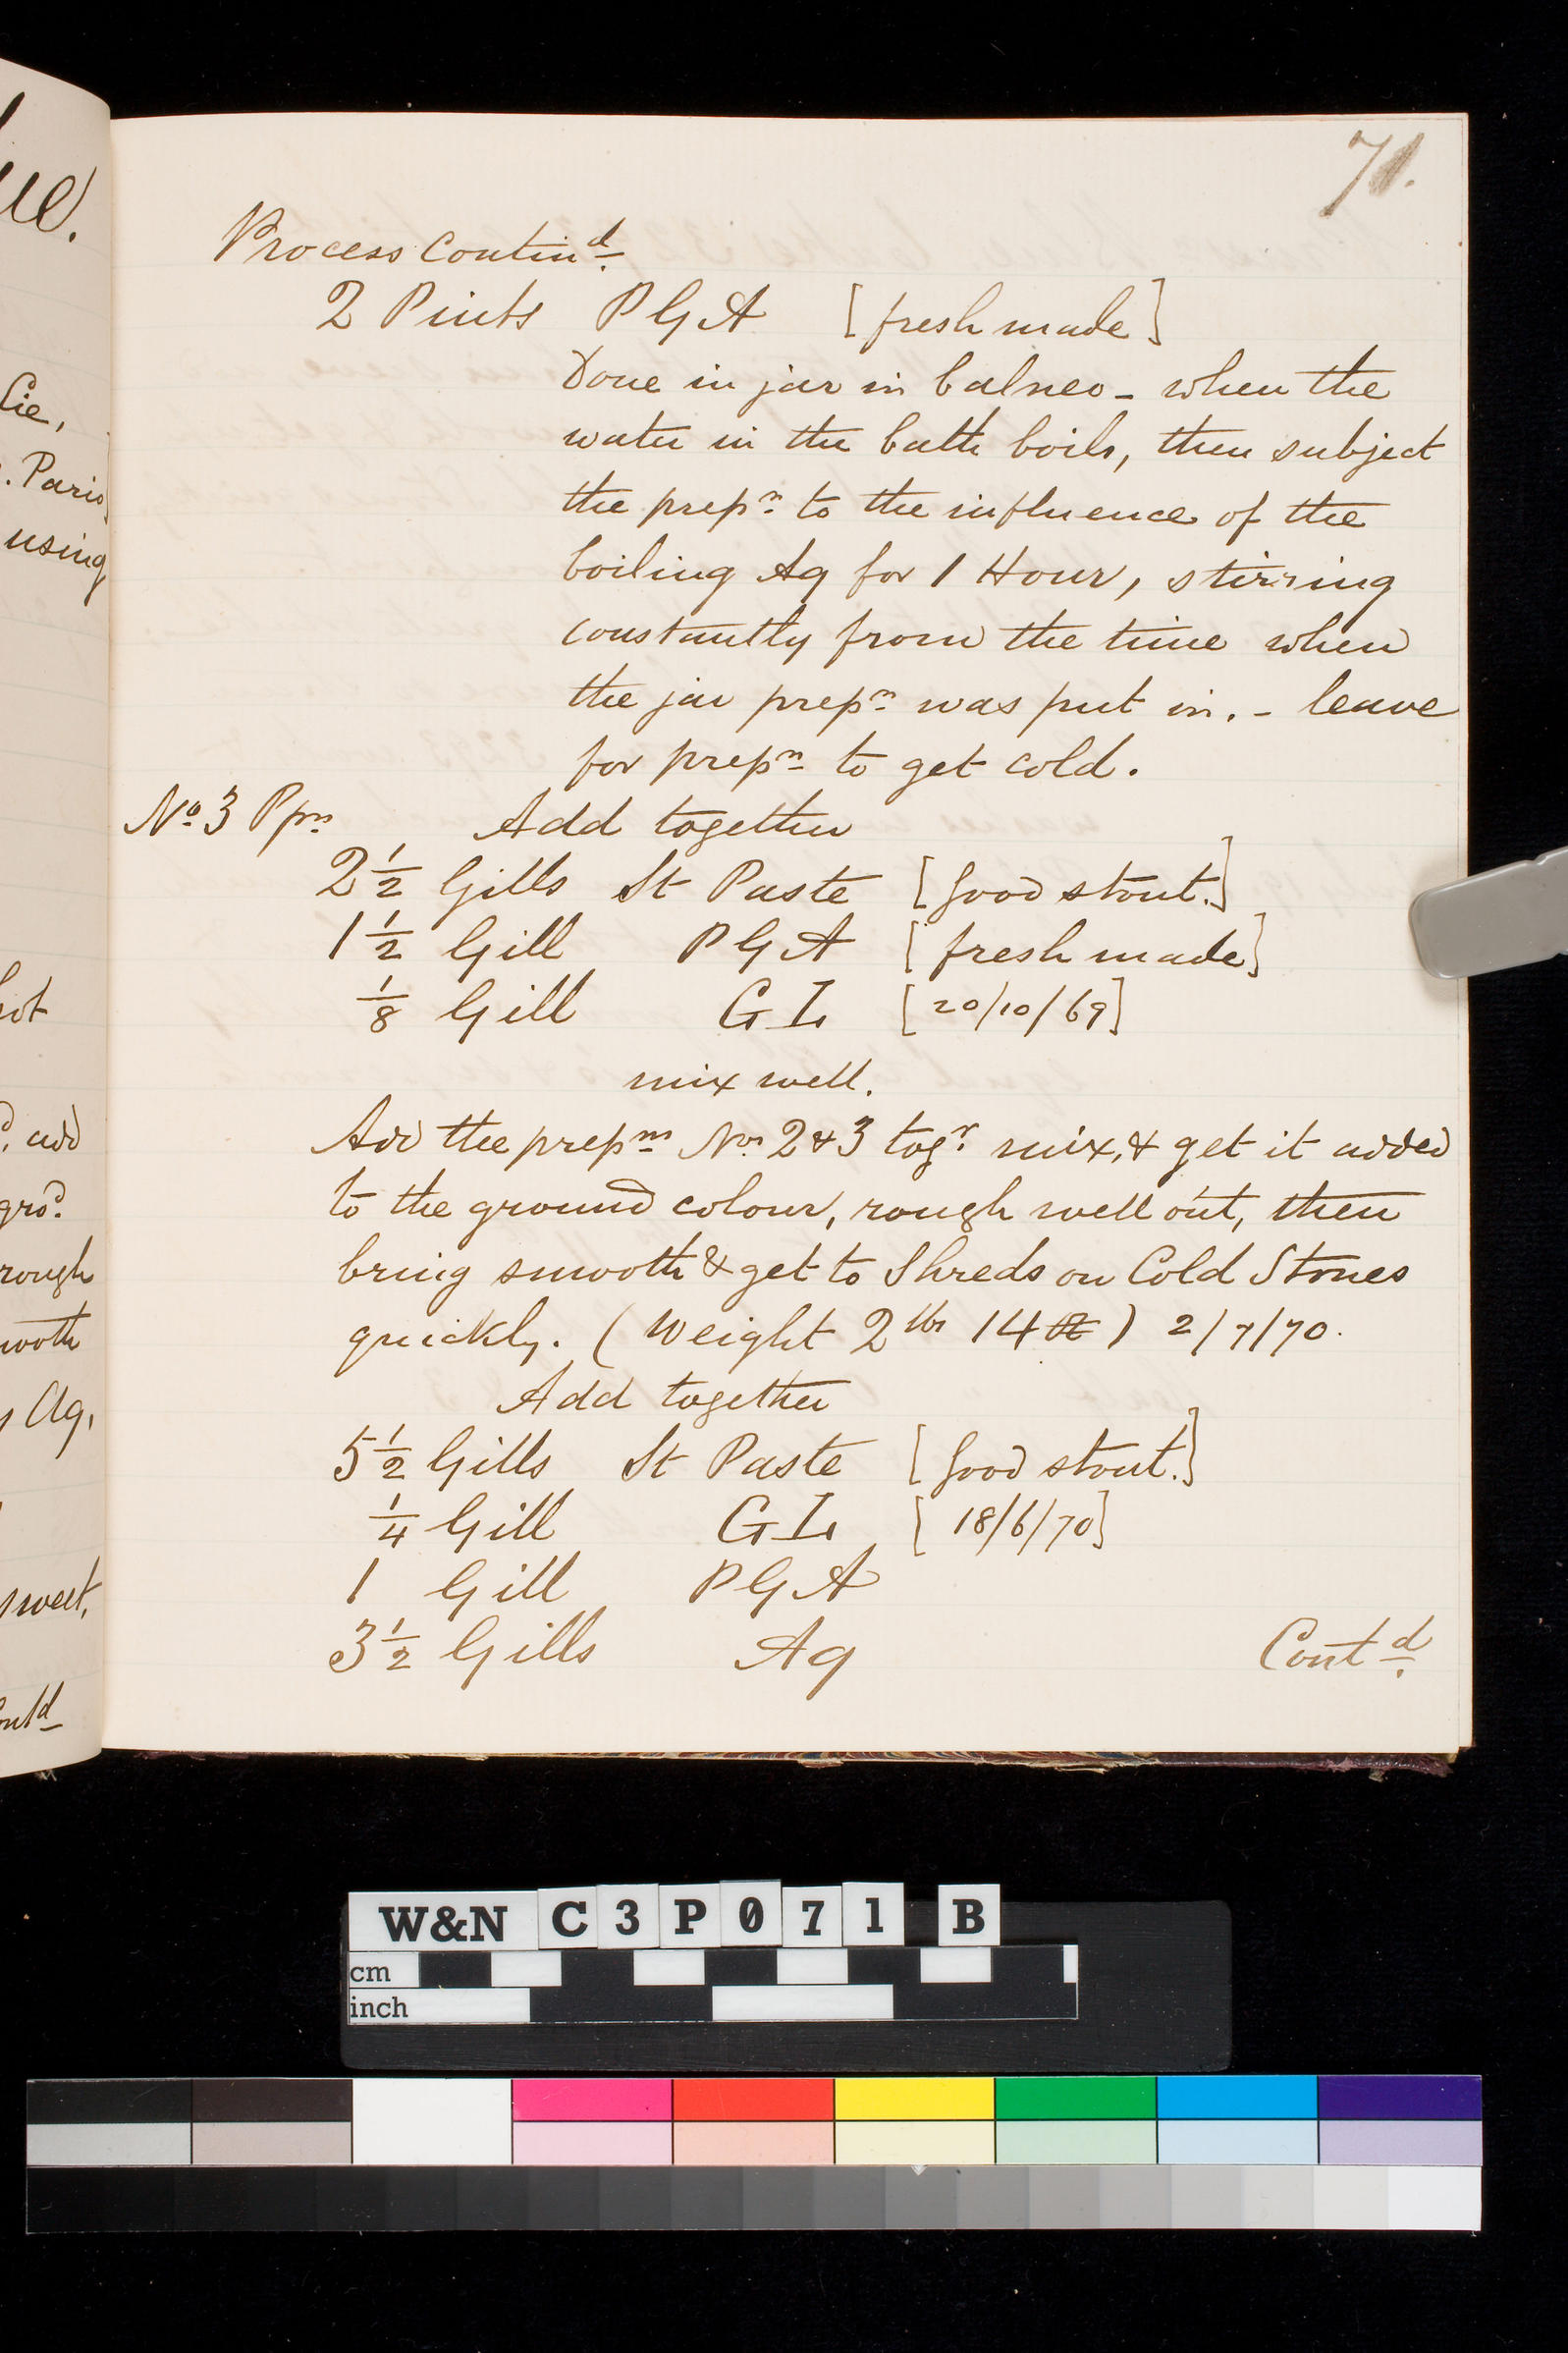 71.
Process Contin.d
2 Pints PGA [fresh made]
Done in jar in balneo - when the
water in the bath boils, then subject
the prepn to the influence of the
boiling Aq for 1 Hour, stirring
constantly from the time when
the jar prepn was put in. - leave
for prepn to get cold.
No 3 Ppn Add together
2½ Gills St Paste [good stout.]
1½ Gill PGA [fresh made]
⅛ Gill GL [20/10/69]
mix well.
Add the prepns Nos 2 & 3 togr mix, & get it added
to the ground colour, rough well out, then
bring smooth & get to Shreds on Cold Stones
quickly. (Weight 2 lbs 14 oz) 2/7/70.
Add together
5½ Gills St Paste [good stout.]
¼ Gill GL [18/6/70]
1 Gill PGA
3½ Gills Aq
Cont.d
ue.
Cie,
. Paris
using
hot
. add
gro.d
rough
mooth
Aq,
sweet,
ontd
W&N C3P071 B
cm
inch